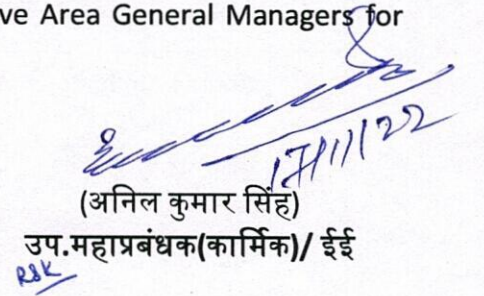 ve Area General Managers for
17/11/22
(अनिल कुमार सिंह)
उप.महाप्रबंधक(कार्मिक)/ ईई
RSK